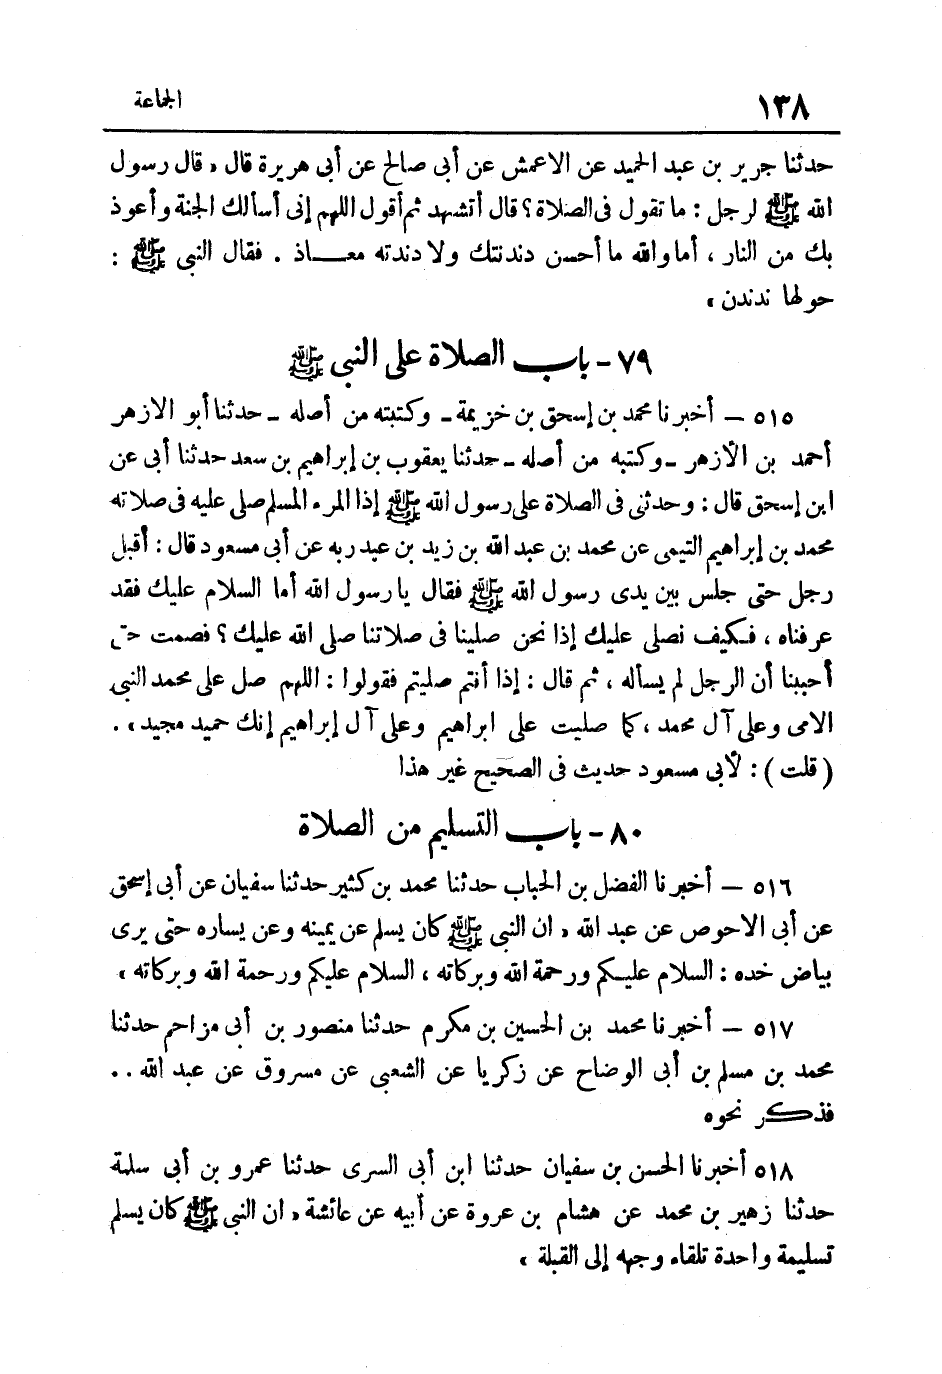 ١٣٨ الجماعة
حدثنا جرير بن عبد الحميد عن الاعمش عن أبى صالح عن أبى هريرة قال « قال رسول
الله ﷺ لرجل : ما تقول فى الصلاة ؟ قال أتشهد ثم أقول اللهم إنى أسألك الجنة وأعوذ
بك من النار ، أما والله ما أحسن دندنتك ولا دندنة معـــاذ . فقال النبى ﷺ :
حولها ندندن »
٧٩ - باب الصلاة على النبى ﷺ
٥١٥ – أخبرنا محمد بن إسحق بن خزيمة - وكتبته من أصله - حدثنا أبو الازهر
أحمد بن الأزهر - وكتبه من أصله - حدثنا يعقوب بن إبراهيم بن سعد حدثنا أبى عن
ابن إسحق قال : وحدثنى فى الصلاة على رسول الله ﷺ إذا المرء المسلم صلى عليه فى صلاته
محمد بن إبراهيم التيمى عن محمد بن عبد الله بن زيد بن عبد ربه عن أبى مسعود قال : أقبل
رجل حتى جلس بين يدى رسول الله ﷺ فقال يا رسول الله أما السلام عليك فقد
عرفناه ، فكيف نصلى عليك إذا نحن صلينا فى صلاتنا صلى الله عليك ؟ فصمت حتى
أحببنا أن الرجل لم يسأله ، ثم قال : إذا أنتم صليتم فقولوا : اللهم صل على محمد النبى
الامى وعلى آل محمد ، كما صليت على ابراهيم وعلى آل إبراهيم إنك حميد مجيد » .
( قلت ) : لأبى مسعود حديث فى الصحيح غير هذا
٨٠ - باب التسليم من الصلاة
٥١٦ – أخبرنا الفضل بن الحباب حدثنا محمد بن كثير حدثنا سفيان عن أبى إسحق
عن أبى الاحوص عن عبد الله « ان النبى ﷺ كان يسلم عن يمينه وعن يساره حتى يرى
بياض خده : السلام عليكم ورحمة الله وبركاته ، السلام عليكم ورحمة الله وبركاته »
٥١٧ – أخبرنا محمد بن الحسين بن مكرم حدثنا منصور بن أبى مزاحم حدثنا
محمد بن مسلم بن أبى الوضاح عن زكريا عن الشعبى عن مسروق عن عبد الله ..
فذكر نحوه
٥١٨ أخبرنا الحسن بن سفيان حدثنا ابن أبى السرى حدثنا عمرو بن أبى سلمة
حدثنا زهير بن محمد عن هشام بن عروة عن أبيه عن عائشة « ان النبى ﷺ كان يسلم
تسليمة واحدة تلقاء وجهه إلى القبلة »